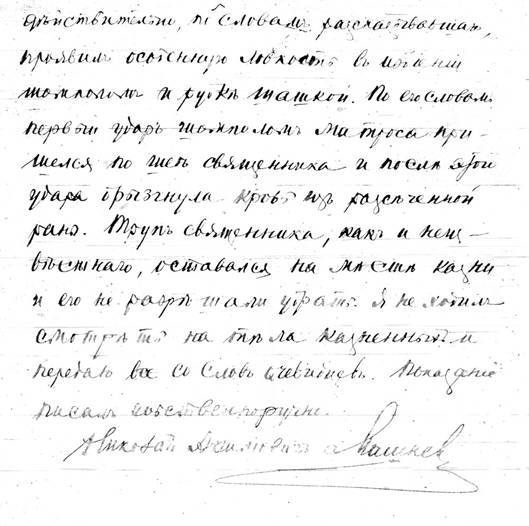 дѣйствительно, по словамъ разсказывавшаго,
проявилъ особенную ловкость въ избіеніи
шомполомъ и рубкѣ шашкой. По его словамъ
первый ударъ шомполомъ матроса при-
шелся по шеѣ священника и послѣ этого
удара брызгнула кровь изъ разсѣченной
раны. Трупъ священника, какъ и неиз-
вѣстнаго, оставался на мѣстѣ казни
и его не разрѣшали убрать. Я не ходилъ
смотрѣть на тѣла казненныхъ и
передаю все со словъ очевидцевъ. Показаніе
писалъ собственноручно.
Николай